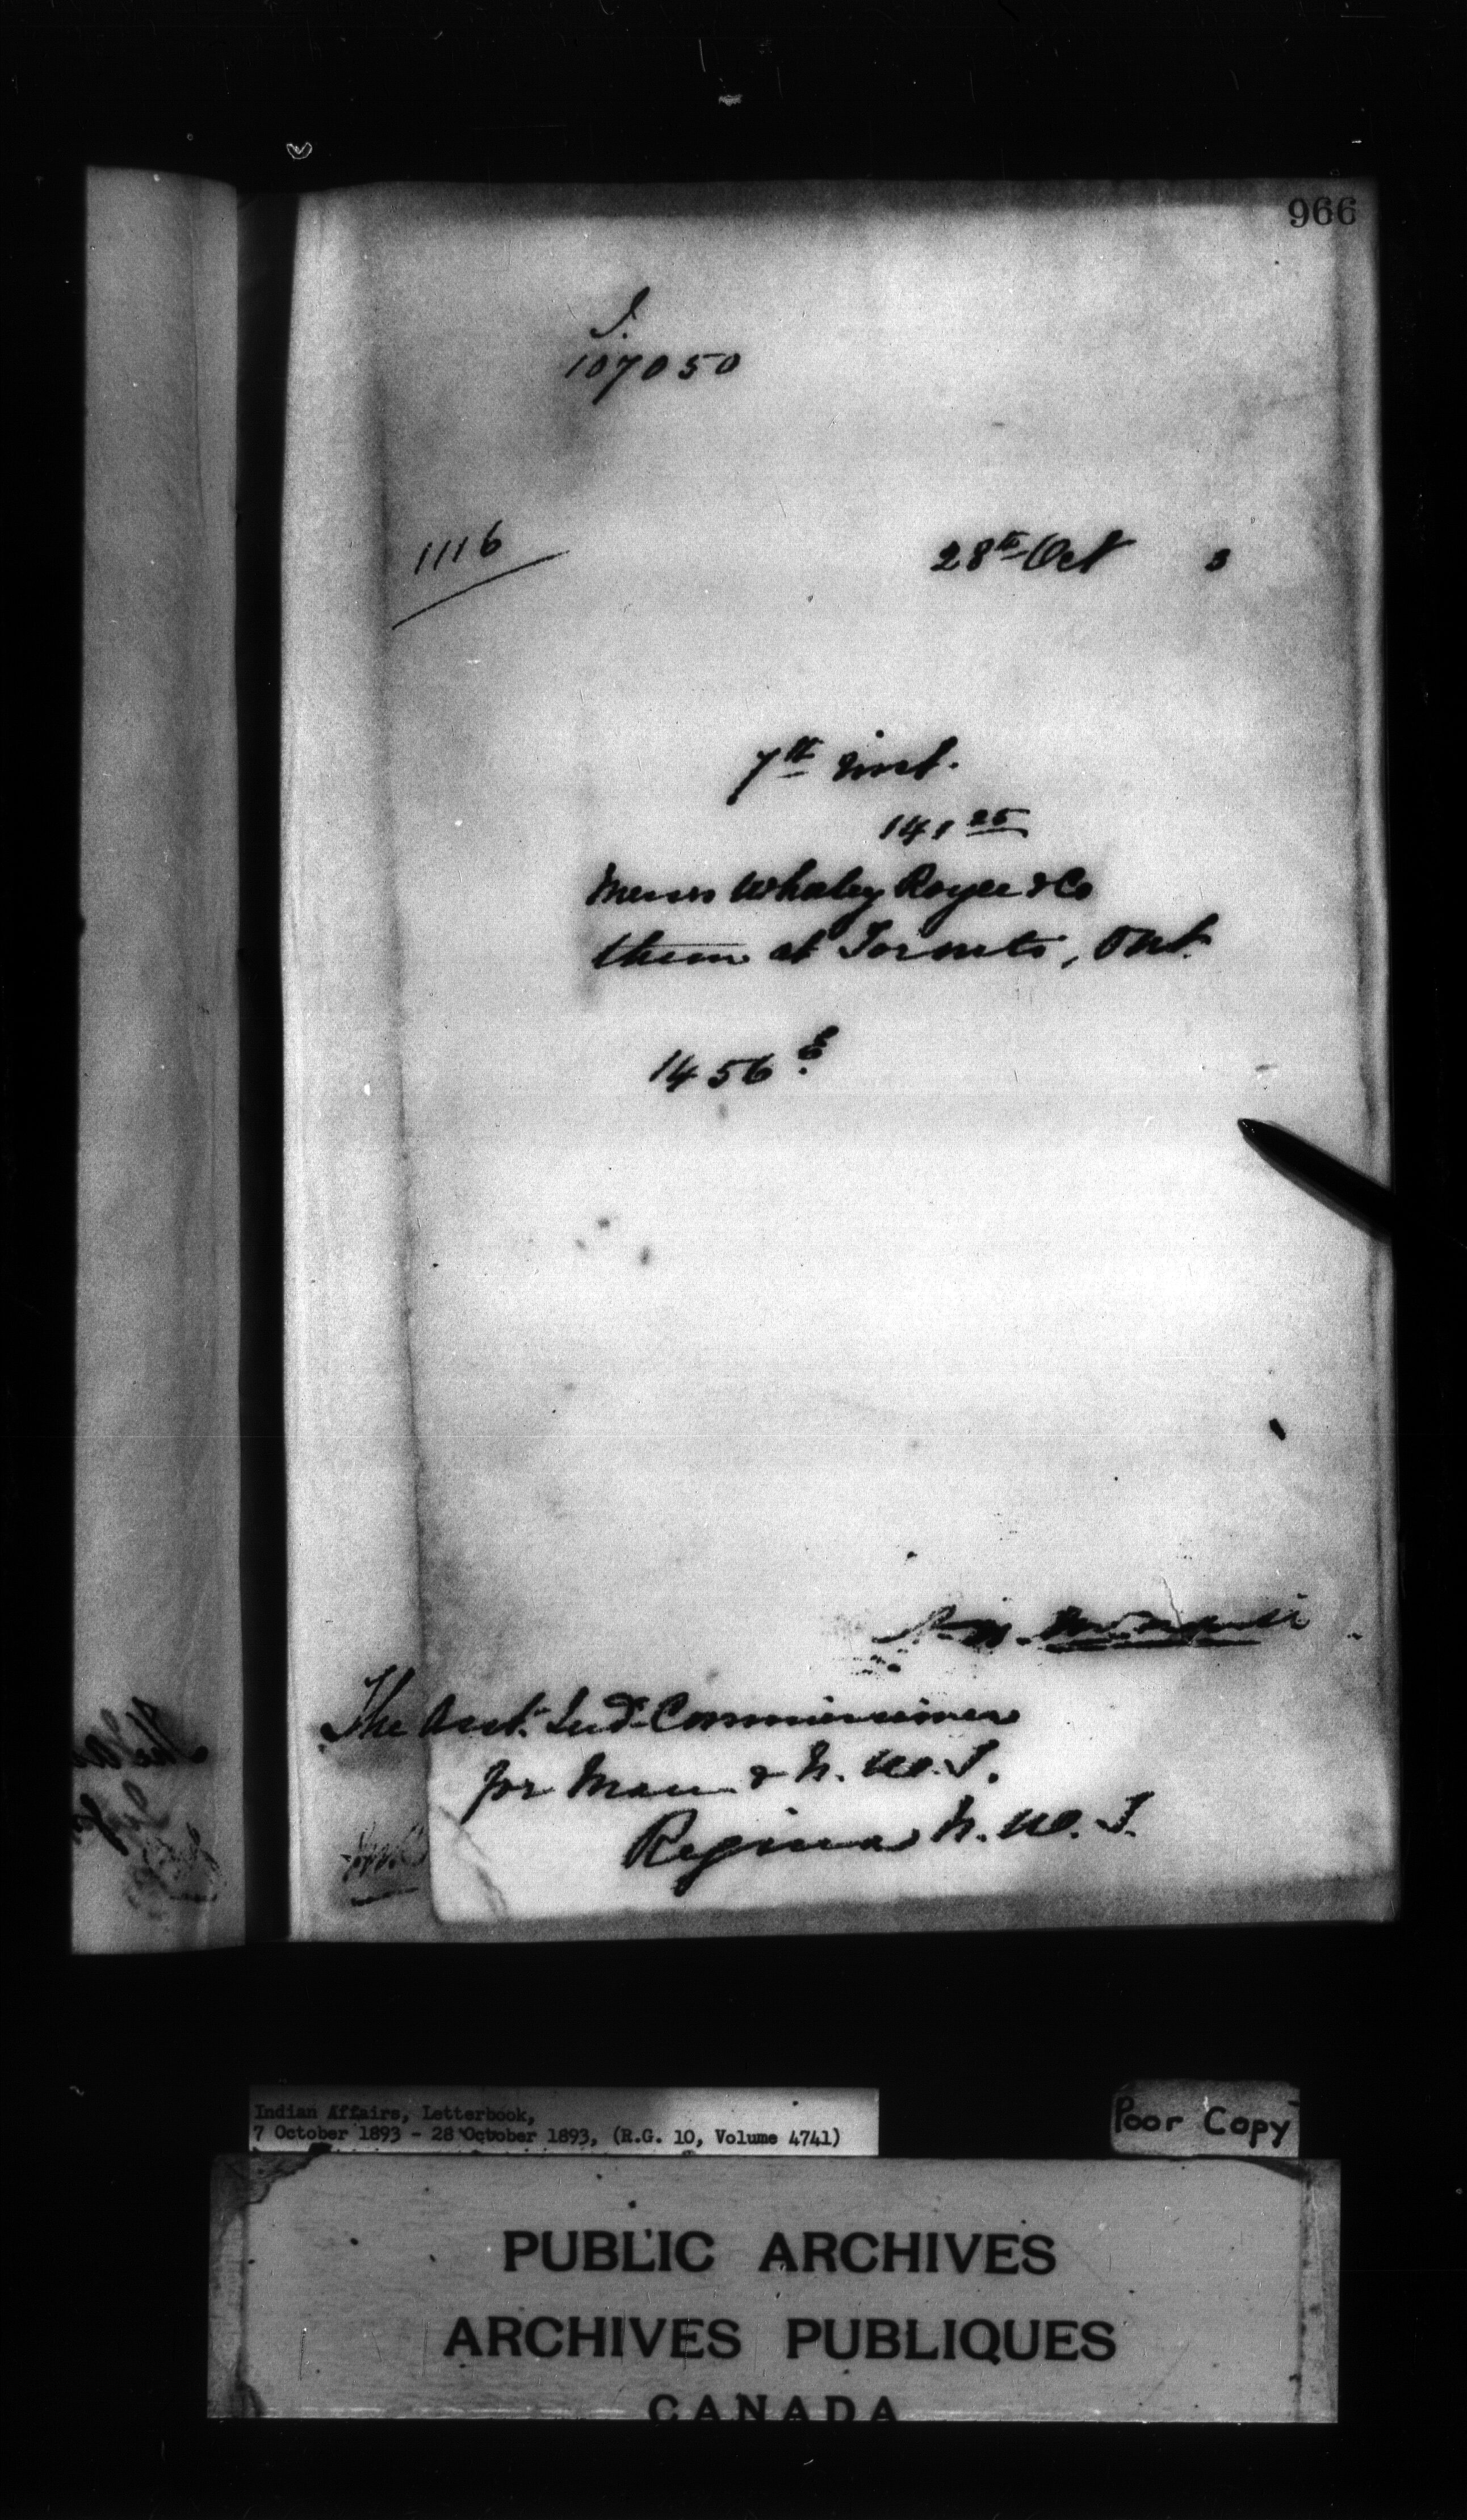 966
107050
1116
28th Oct 3
7th inst.
141 25
Messrs Whaley Royce & Co
them at Toronto, Ont.
1456
The Asst. Ind. Commissioner
for Man & N. W. T.
Regina N. W. T.
Indian Affairs, Letterbook,
7 October 1893 - 28 October 1893, (R.G. 10, Volume 4741)
Poor Copy
PUBLIC ARCHIVES
ARCHIVES PUBLIQUES
CANADA